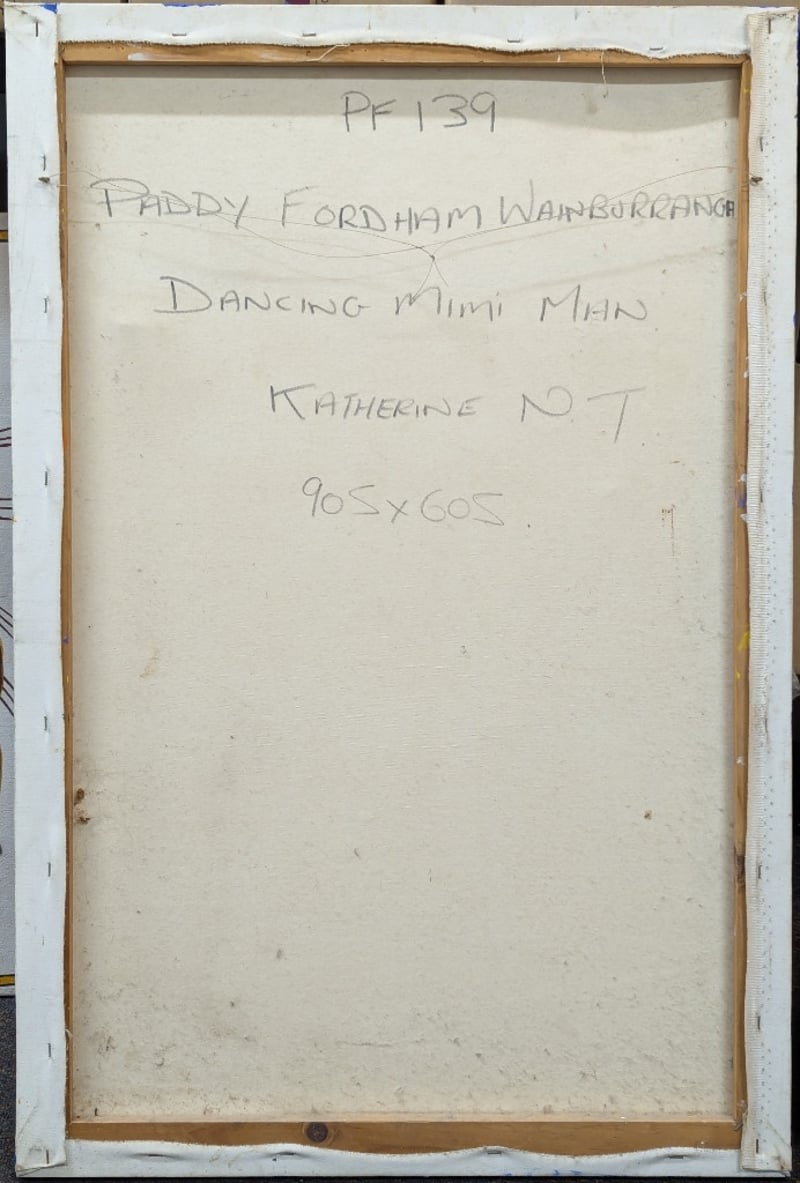 PF 139
PADDY FORDHAM WAINBURRANGA
DANCING MIMI MAN
KATHERINE N.T.
905x605.